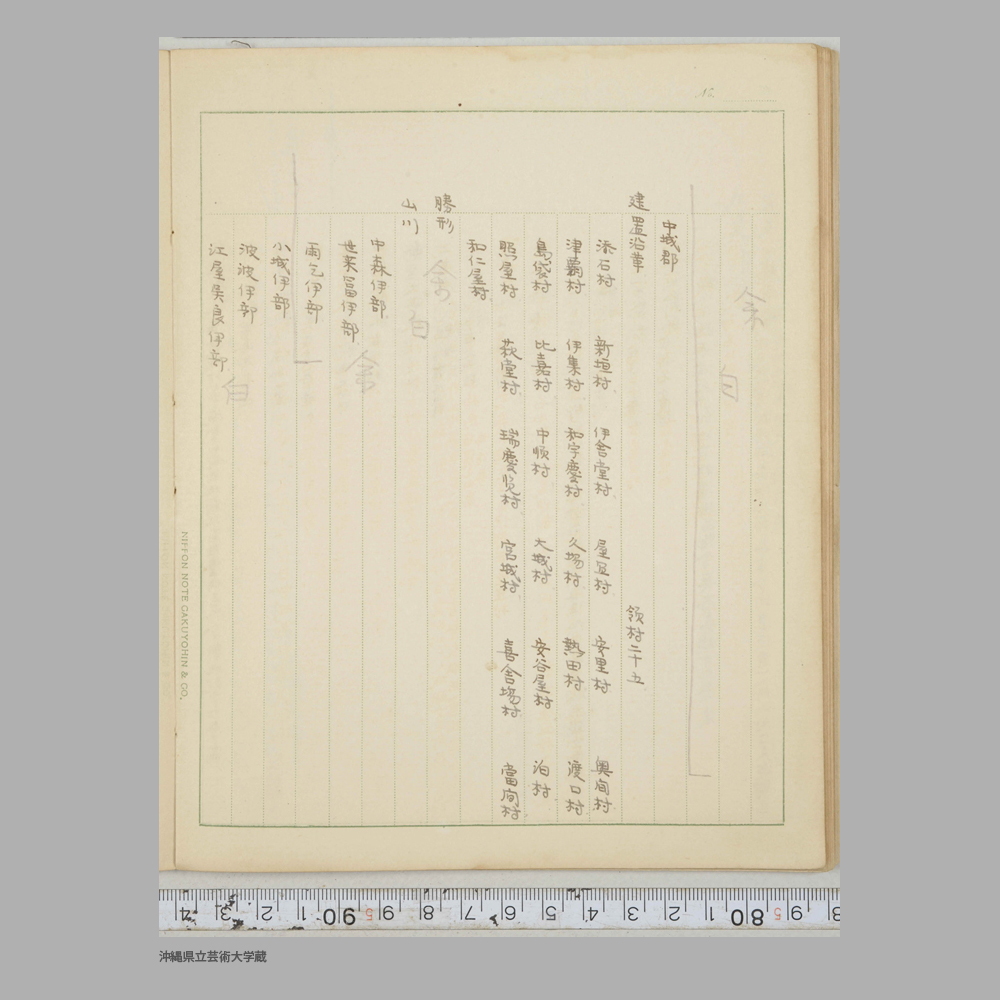 No.
余
白
中城郡
建置沿革
領村二十五
添石村 新垣村 伊舎堂村 屋宜村 安里村 奥間村
津覇村 伊集村 和宇慶村 久場村 熱田村 渡口村
島袋村 比嘉村 中順村 大城村 安谷屋村 泊村
照屋村 萩堂村 瑞慶覧村 宮城村 喜舎場村 當間村
和仁屋村
勝形
余
山川
白
中森伊部
余
世来留伊部
雨乞伊部
小城伊部
波波伊部
白
江屋美良伊部
NIPPON NOTE GAKUYOHIN & CO.
4 3 2 1 90 9 5 8 7 6 5 4 3 2 1 80 9 5 8
沖縄県立芸術大学蔵